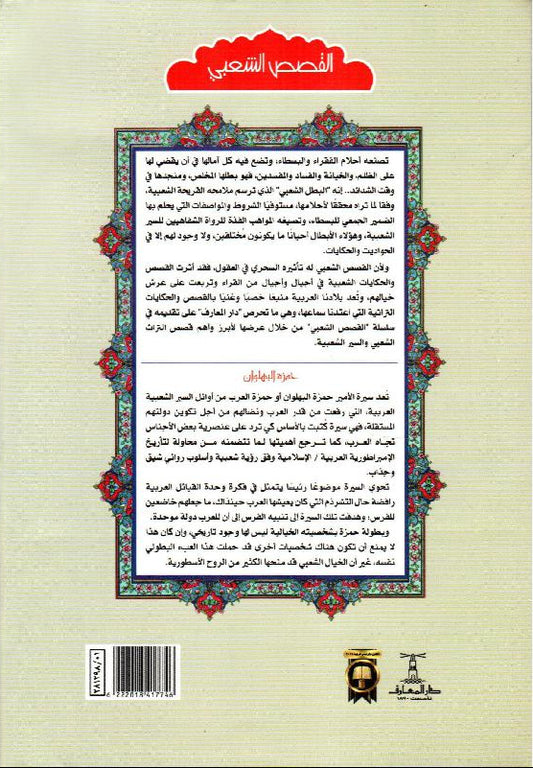 القصص الشعبي
تصنعه أحلام الفقراء والبسطاء، وتضع فيه كل آمالها في أن يقضي لها
على الظلم، والخيانة والفساد والمفسدين، فهو بطلها المخلص، ومنجدها في
وقت الشدائد.. إنه "البطل الشعبي" الذي ترسم ملامحه القريحة الشعبية،
وفقا لما تراه محققا لأحلامها، مستوفيا الشروط والمواصفات التي يحلم بها
الضمير الجمعي للبسطاء، وتصيغه المواهب الفذة للرواة الشفاهيين للسير
الشعبية، وهؤلاء الأبطال أحيانا ما يكونون مختلقين، ولا وجود لهم إلا في
الحواديت والحكايات.
ولأن القصص الشعبي له تأثيره السحري في العقول، فقد أثرت القصص
والحكايات الشعبية في أجيال وأجيال من القراء وتربعت على عرش
خيالهم، وتُعد بلادنا العربية منبعًا خصبًا وغنيًا بالقصص والحكايات
التراثية التي اعتدنا سماعها، وهي ما تحرص "دار المعارف" على تقديمه في
سلسلة "القصص الشعبي" من خلال عرضها لأبرز وأهم قصص التراث
الشعبي والسير الشعبية.
حمزة البهلوان
تُعد سيرة الأمير حمزة البهلوان أو حمزة العرب من أوائل السير الشعبية
العربية، التي رفعت من قدر العرب ونضالهم من أجل تكوين دولتهم
المستقلة، فهي سيرة كُتبت بالأساس كي ترد على عنصرية بعض الأجناس
تجاه العرب، كما ترجع أهميتها لما تتضمنه من محاولة لتأريخ
الإمبراطورية العربية / الإسلامية وفق رؤية شعبية وأسلوب روائي شيق
وجذاب.
تحوي السيرة موضوعًا رئيسًا يتمثل في فكرة وحدة القبائل العربية
رافضة حال التشرذم التي كان يعيشها العرب حينذاك، ما جعلهم خاضعين
للفرس، وهدفت تلك السيرة إلى تنبيه الفرس إلى أن للعرب دولة موحدة.
وبطولة حمزة بشخصيته الخيالية ليس لها وجود تاريخي، وإن كان هذا
لا يمنع أن تكون هناك شخصيات أخرى قد حملت هذا العبء البطولي
نفسه، غير أن الخيال الشعبي قد منحها الكثير من الروح الأسطورية.
دار المعارف
تأسست ١٨٩٠
٢٨١٢٩٨/٠١
6 222018 417746